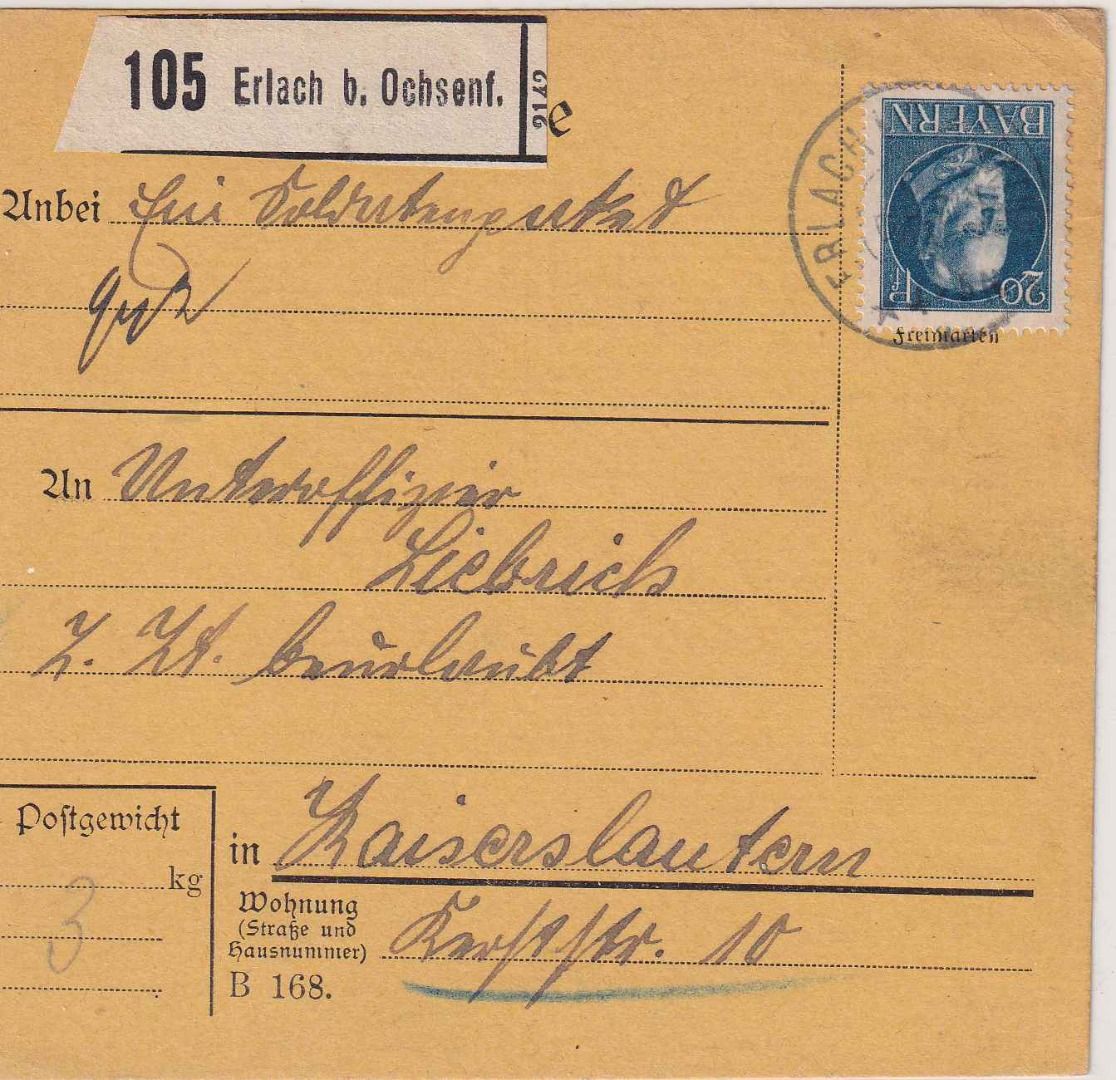 105 Erlach b. Ochsenf.
2142
e
BAYERN
20 Pf
ERLACH
Freimarken
Anbei Ein Soldatenpaket
An Unteroffizier
Liebrich
z. Zt. beurlaubt
Postgewicht
kg
3
in Kaiserslautern
Wohnung
(Straße und
Hausnummer)
Kerststr. 10
B 168.